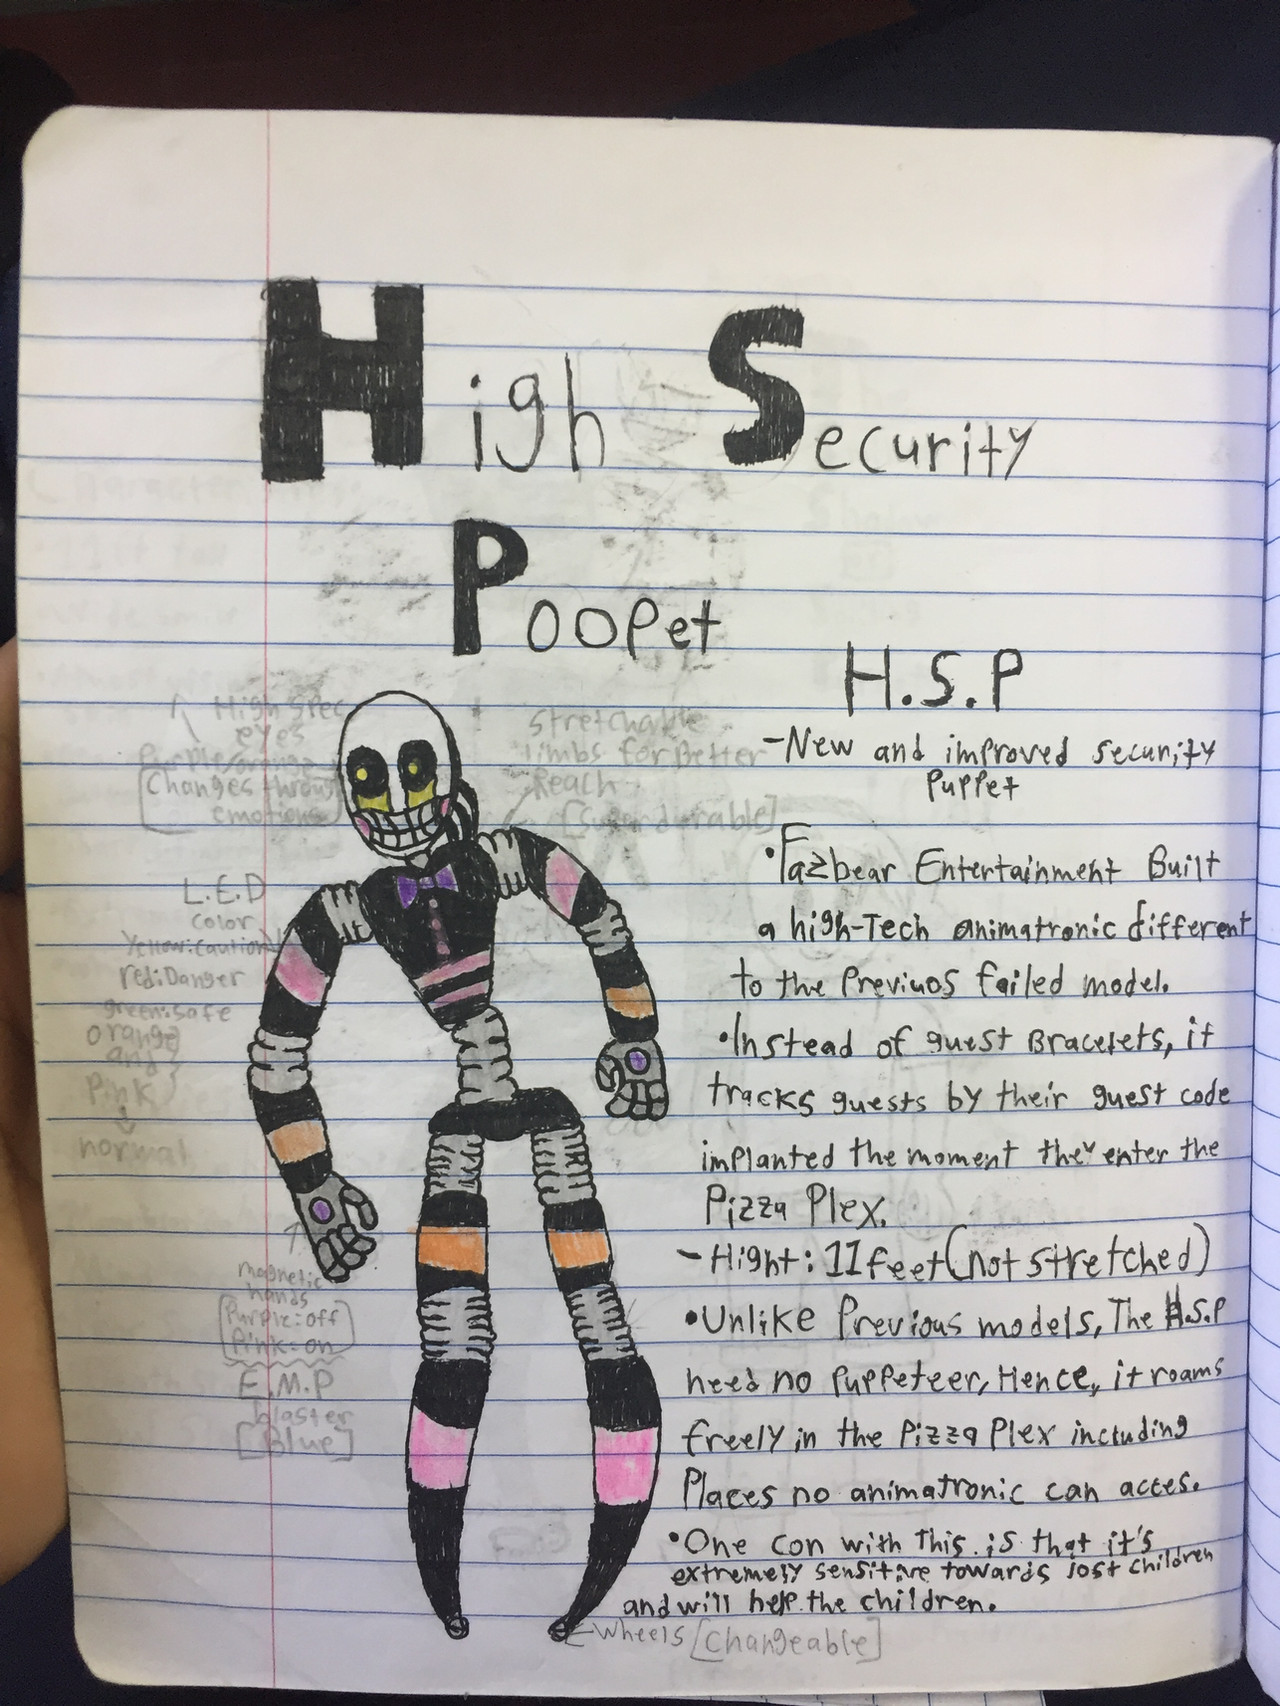 High Security
Poopet
H.S.P
-New and improved security
Puppet
•Fazbear Entertainment Built
a high-Tech animatronic different
to the Previuos failed model.
•Instead of guest Bracelets, it
tracks guests by their guest code
implanted the moment they enter the
Pizza Plex.
-Hight: 11 feet (not stretched)
•Unlike Previous models, The H.S.P
need no puppeteer, Hence, it roams
freely in the Pizza Plex including
Places no animatronic can acces.
•One con with this is that it's
extremely sensitive towards lost children
and will help the children.
←Wheels [Changeable]
High Spec
eyes
Purple/orange
[Changes throug
emotions]
Stretchable
limbs for Better
Reach
[Super durable]
L.E.D
color
Yellow:caution
red:Danger
green:safe
orange
and
Pink
normal
magnetic
hands
[Purple:off
Pink:on]
E.M.P
blaster
[Blue]